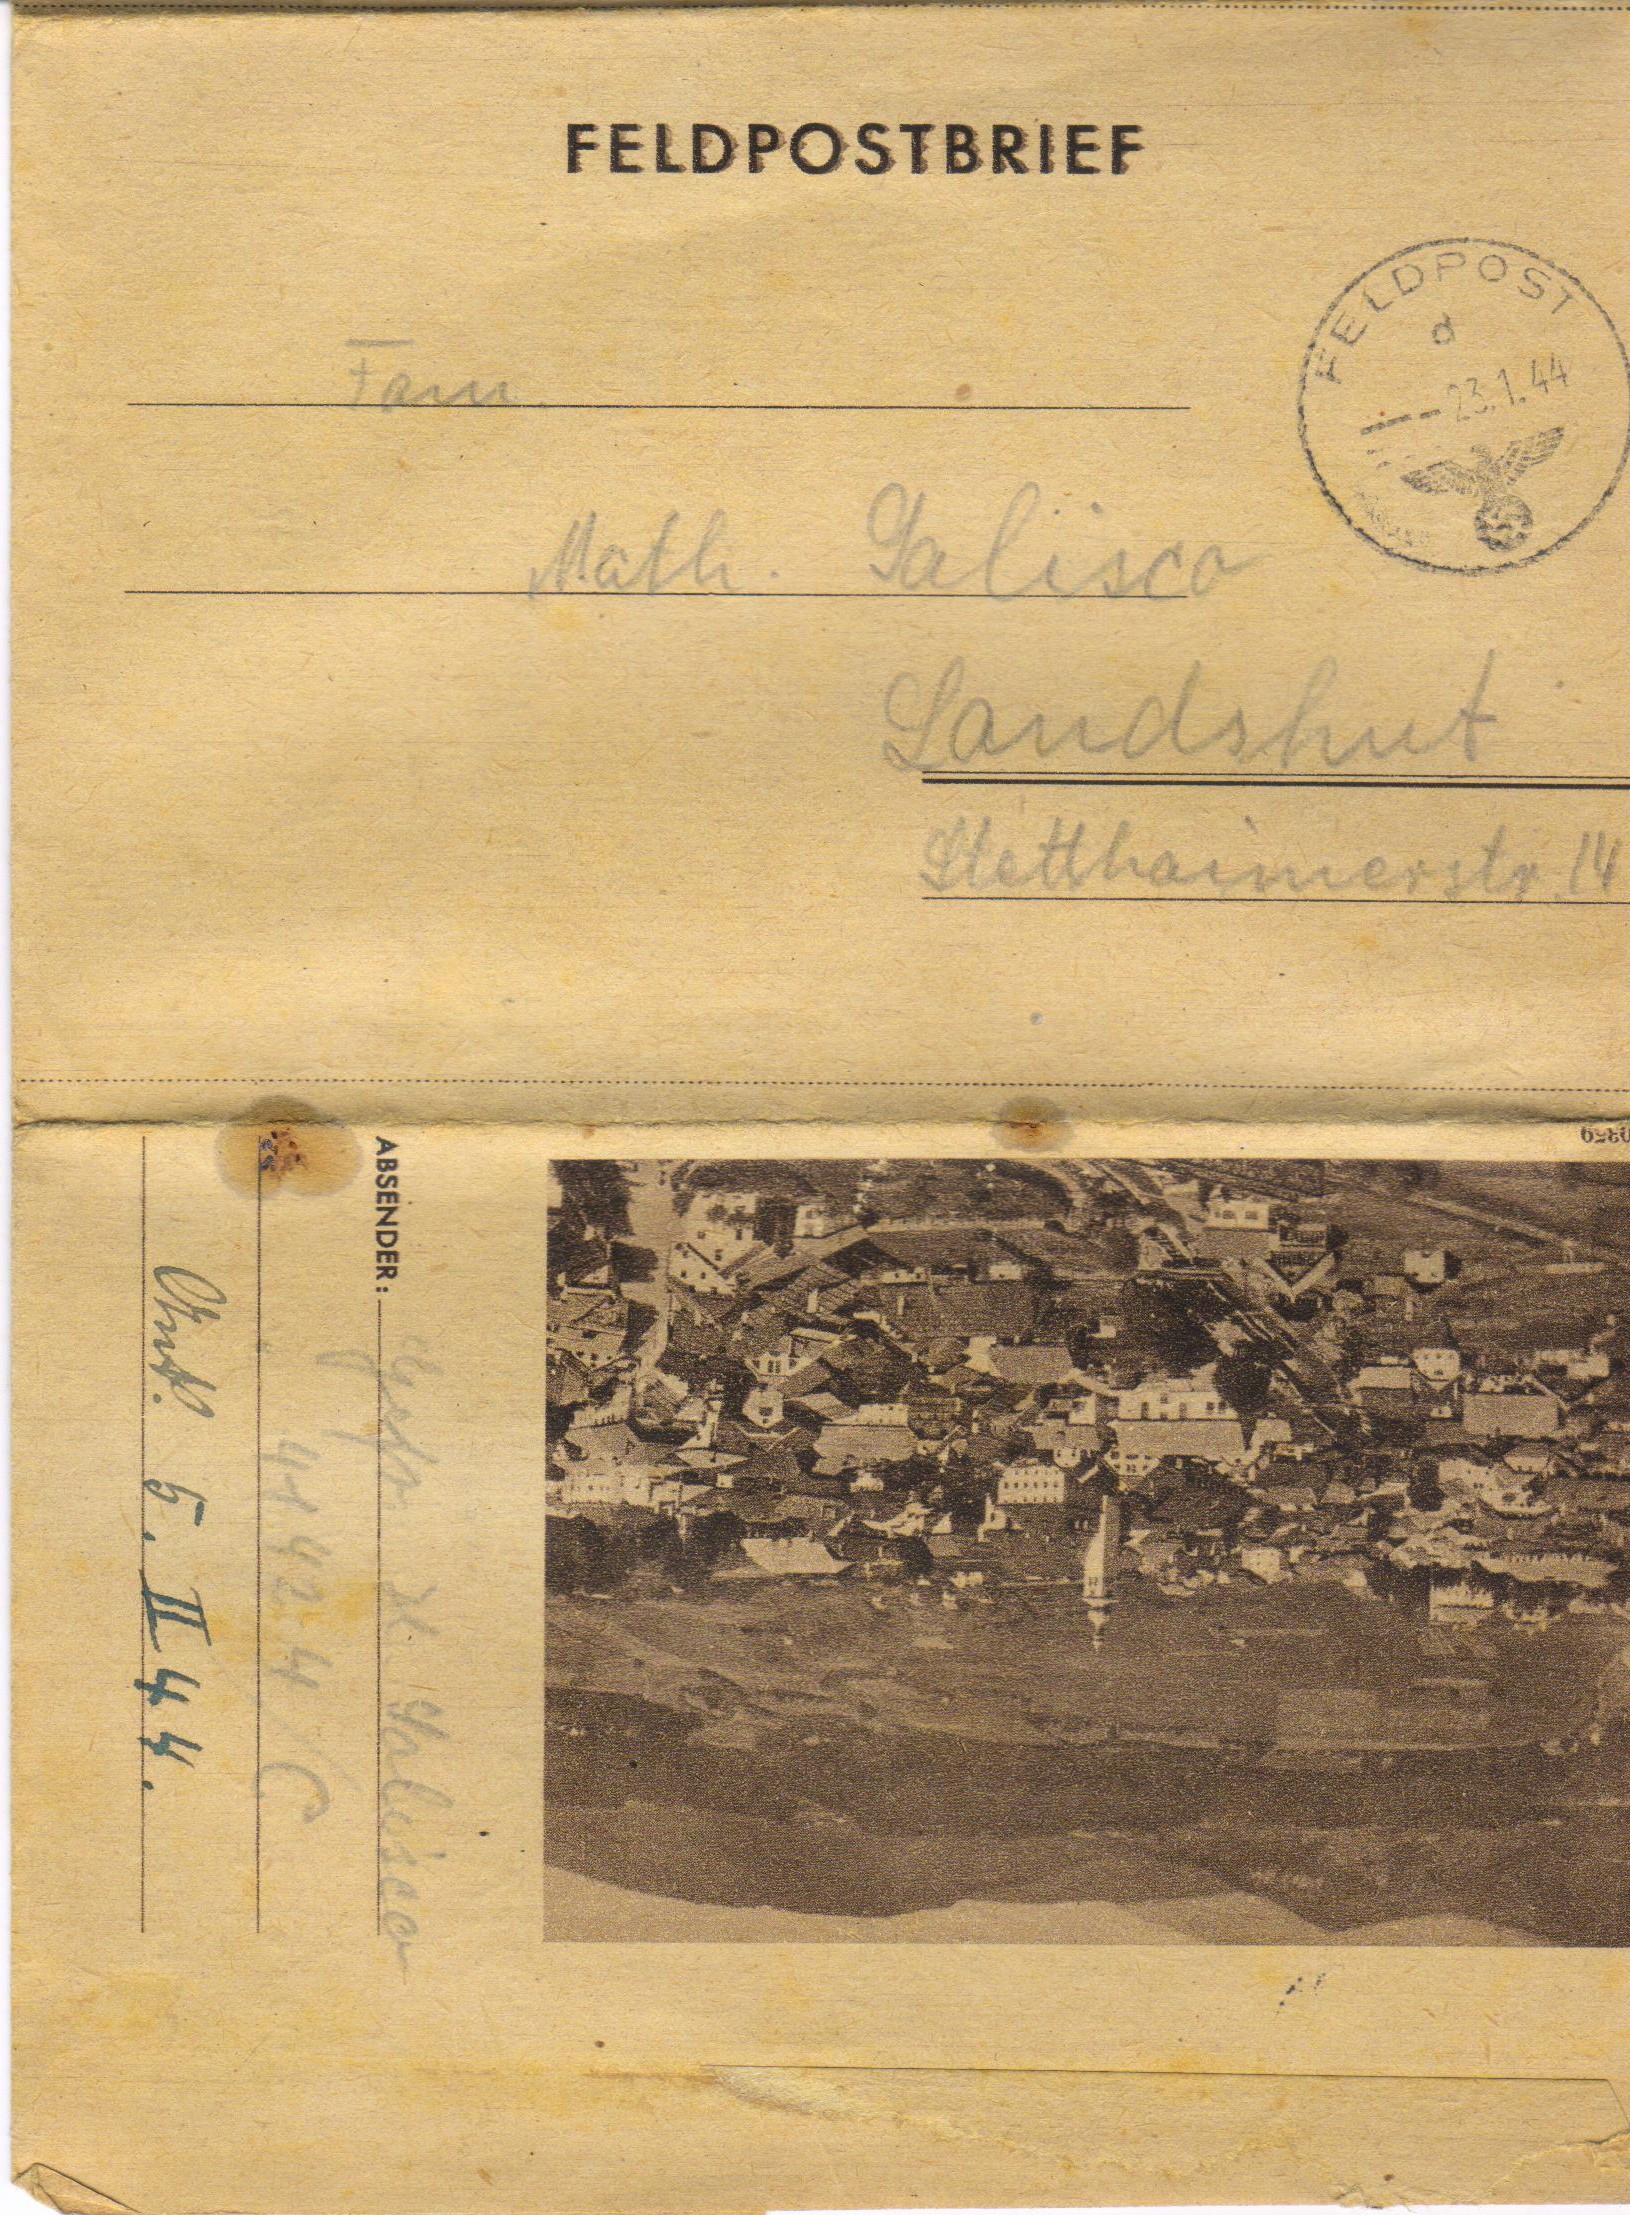 FELDPOSTBRIEF
FELDPOST
d
23.1.44
Fam.
Math. Salisco
Landshut
Stetthaimerstr. 14
ABSENDER:
Gefr. H. Salisco
41424/C
5. II 44.